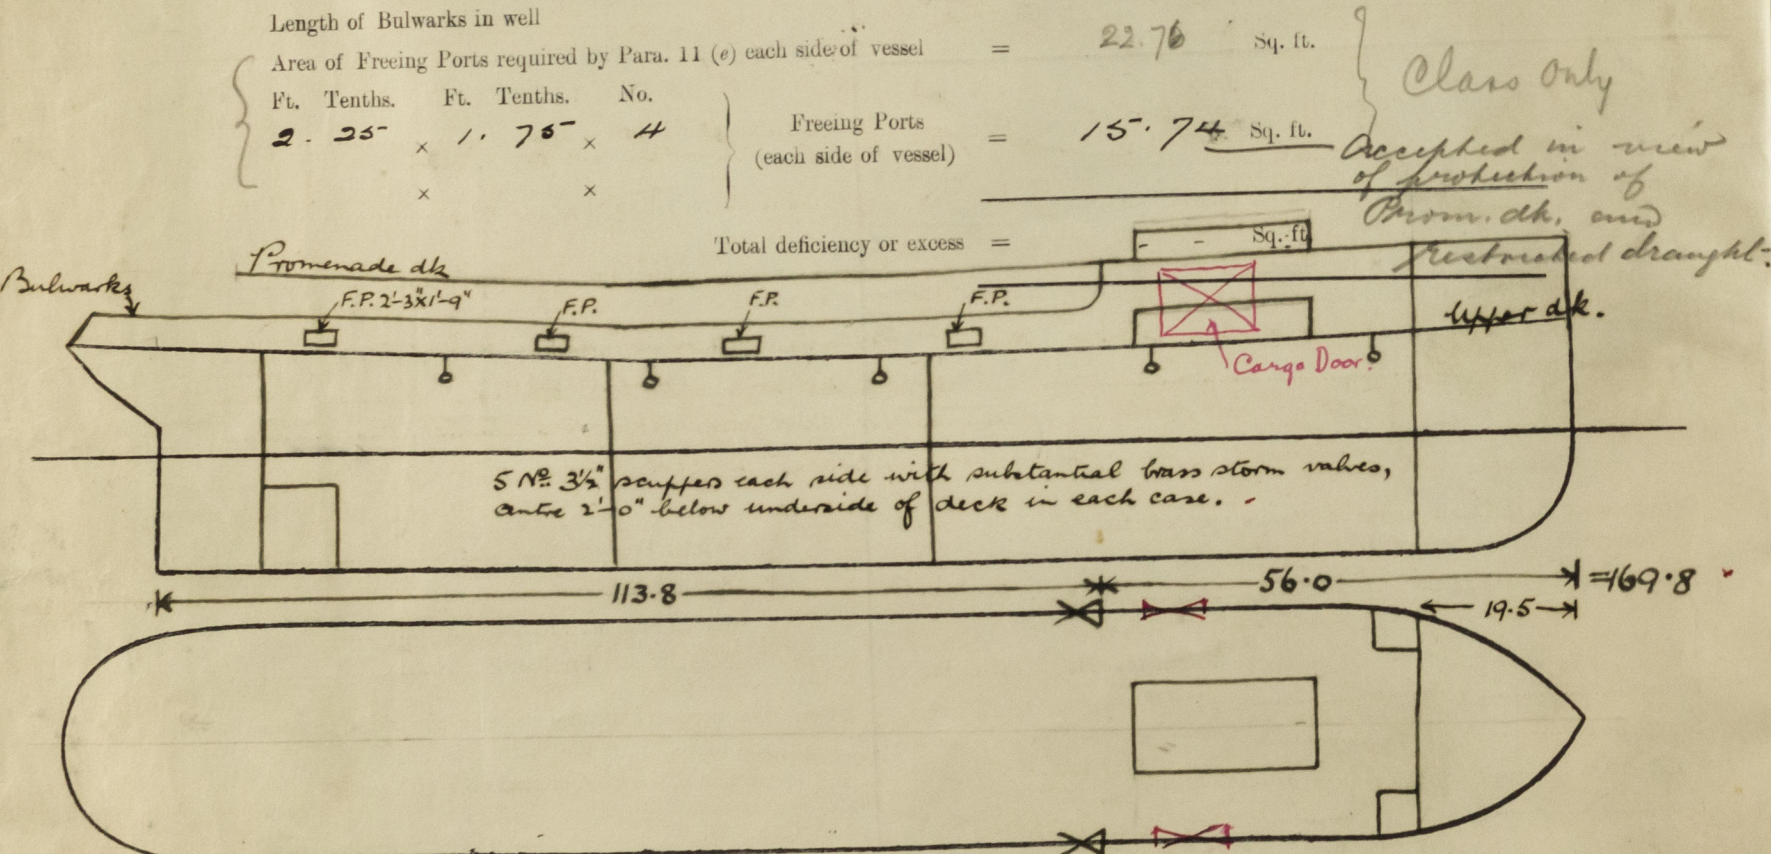 Length of Bulwarks in well
Area of Freeing Ports required by Para. 11 (e) each side of vessel = 22.76 Sq. ft.
Ft. Tenths. Ft. Tenths. No.
2. 25 × 1. 75 × 4 Freeing Ports (each side of vessel) = 15.74 Sq. ft.
× ×
Class Only
Accepted in view
of protection of
Prom. dk. and
restricted draught.
Total deficiency or excess = - - Sq. ft.
Promenade dk
Bulwarks
F.P. 2'-3"x1'-9"
F.P.
F.P.
F.P.
Upper dk.
Cargo Door.
5 No. 3½" scuppers each side with substantial brass storm valves,
centre 2'-0" below underside of deck in each case.
113.8 56.0 =169.8
19.5